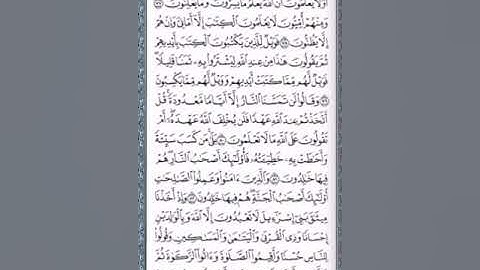 أَوَلَا يَعْلَمُونَ أَنَّ ٱللَّهَ يَعْلَمُ مَا يُسِرُّونَ وَمَا يُعْلِنُونَ ٧٧
وَمِنْهُمْ أُمِّيُّونَ لَا يَعْلَمُونَ ٱلْكِتَٰبَ إِلَّآ أَمَانِىَّ وَإِنْ هُمْ
إِلَّا يَظُنُّونَ ٧٨ فَوَيْلٌ لِّلَّذِينَ يَكْتُبُونَ ٱلْكِتَٰبَ بِأَيْدِيهِمْ
ثُمَّ يَقُولُونَ هَٰذَا مِنْ عِندِ ٱللَّهِ لِيَشْتَرُوا۟ بِهِۦ ثَمَنًا قَلِيلًا
فَوَيْلٌ لَّهُم مِّمَّا كَتَبَتْ أَيْدِيهِمْ وَوَيْلٌ لَّهُم مِّمَّا يَكْسِبُونَ
٧٩ وَقَالُوا۟ لَن تَمَسَّنَا ٱلنَّارُ إِلَّآ أَيَّامًا مَّعْدُودَةً قُلْ
أَتَّخَذْتُمْ عِندَ ٱللَّهِ عَهْدًا فَلَن يُخْلِفَ ٱللَّهُ عَهْدَهُۥٓ أَمْ
تَقُولُونَ عَلَى ٱللَّهِ مَا لَا تَعْلَمُونَ ٨٠ بَلَىٰ مَن كَسَبَ سَيِّئَةً
وَأَحَٰطَتْ بِهِۦ خَطِيٓـَٔتُهُۥ فَأُو۟لَٰٓئِكَ أَصْحَٰبُ ٱلنَّارِ هُمْ
فِيهَا خَٰلِدُونَ ٨١ وَٱلَّذِينَ ءَامَنُوا۟ وَعَمِلُوا۟ ٱلصَّٰلِحَٰتِ
أُو۟لَٰٓئِكَ أَصْحَٰبُ ٱلْجَنَّةِ هُمْ فِيهَا خَٰلِدُونَ ٨٢ وَإِذْ أَخَذْنَا
مِيثَٰقَ بَنِىٓ إِسْرَٰٓءِيلَ لَا تَعْبُدُونَ إِلَّا ٱللَّهَ وَبِٱلْوَٰلِدَيْنِ
إِحْسَانًا وَذِى ٱلْقُرْبَىٰ وَٱلْيَتَٰمَىٰ وَٱلْمَسَٰكِينِ وَقُولُوا۟
لِلنَّاسِ حُسْنًا وَأَقِيمُوا۟ ٱلصَّلَوٰةَ وَءَاتُوا۟ ٱلزَّكَوٰةَ ثُمَّ